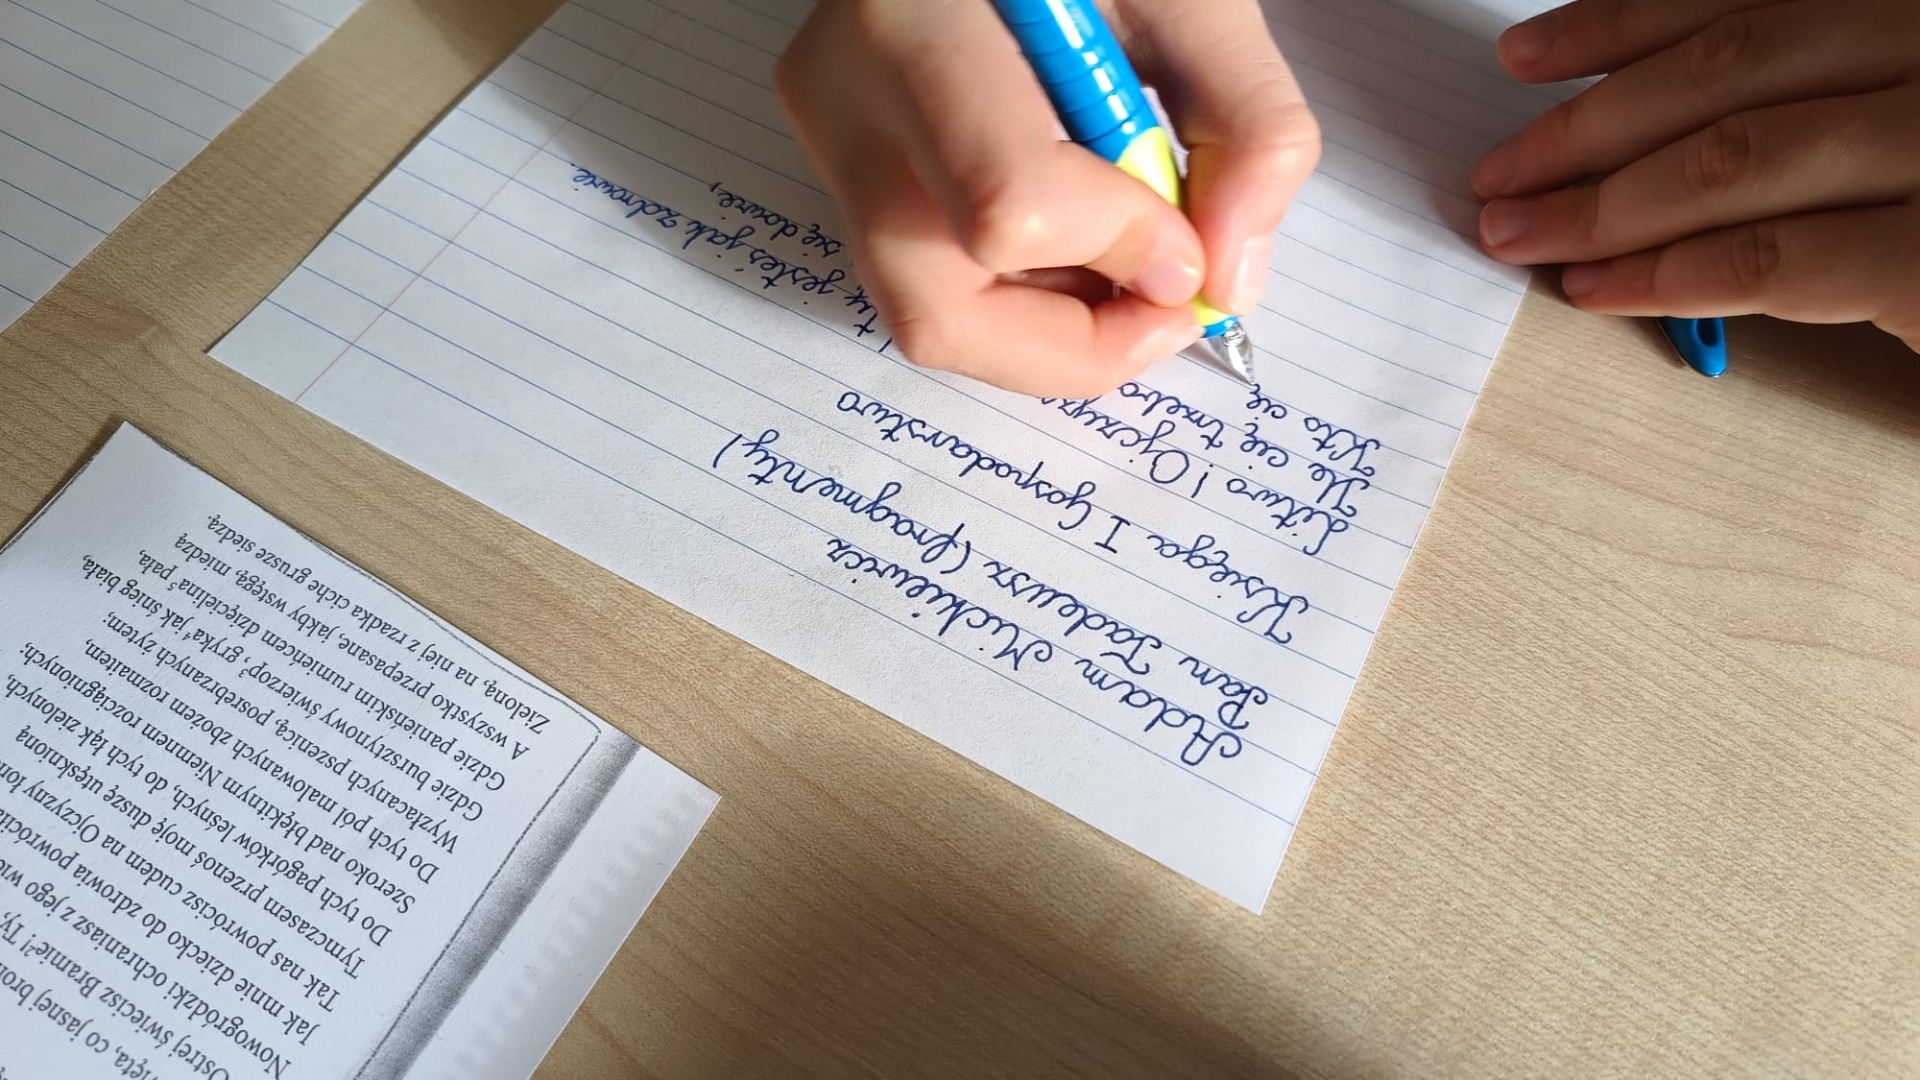 Adam Mickiewicz
Pan Tadeusz (fragmenty)
Księga I Gospodarstwo
Litwo! Ojczyzn ty jesteś jak zdrowie.
Ile cię trzeba się dowie,
Kto cię
co jasnej
Ostrej świecisz Bramie²! Ty,
Nowogródzki ochraniasz z jego
Jak mnie dziecko do zdrowia powróciła
Tak nas powrócisz cudem na Ojczyzny
Tymczasem przenoś moję duszę utęsknioną
Do tych pagórków leśnych, do tych łąk zielonych,
Szeroko nad błękitnym Niemnem rozciągnionych;
Do tych pól malowanych zbożem rozmaitem,
Wyzłacanych pszenicą, posrebrzanych żytem;
Gdzie bursztynowy świerzop³, gryka⁴ jak śnieg biała,
Gdzie panieńskim rumieńcem dzięcielina⁵ pała,
A wszystko przepasane, jakby wstęgą, miedzą
Zieloną, na niej z rzadka ciche grusze siedzą.